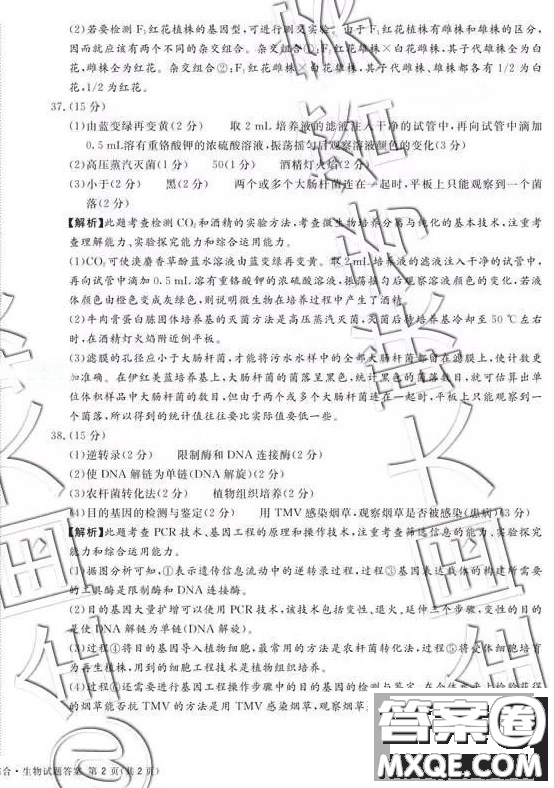 (2)若要检测F₁红花植株的基因型,可进行测交实验。由于F₁红花植株有雌株和雄株的区分,
因而就应该有两个不同的杂交组合。杂交组合①:F₁红花雌株×白花雄株,其子代雄株全为白
花,雌株全为红花。杂交组合②:F₁红花雄株×白花雌株,其子代雌株、雄株都各有1/2为白
花,1/2为红花。
37.(15分)
(1)由蓝变绿再变黄(2分) 取2mL培养液的滤液注入干净的试管中,再向试管中滴加
0.5mL溶有重铬酸钾的浓硫酸溶液,振荡摇匀后观察溶液颜色的变化(3分)
(2)高压蒸汽灭菌(1分) 50(1分) 酒精灯火焰(2分)
(3)小于(2分) 黑(2分) 两个或多个大肠杆菌连在一起时,平板上只能观察到一个菌
落(2分)
【解析】此题考查检测CO₂和酒精的实验方法,考查微生物培养分离与纯化的基本技术,注重考
查理解能力、实验探究能力和综合运用能力。
(1)CO₂可使溴麝香草酚蓝水溶液由蓝变绿再变黄。取2mL培养液的滤液注入干净的试管中,
再向试管中滴加0.5mL溶有重铬酸钾的浓硫酸溶液,振荡摇匀后观察溶液颜色的变化,若液
体颜色由橙色变成灰绿色,则说明微生物在培养过程中产生了酒精。
(2)牛肉膏蛋白胨固体培养基的灭菌方法是高压蒸汽灭菌,灭菌后待培养基冷却至50℃左右
时,在酒精灯火焰附近倒平板。
(3)滤膜的孔径应小于大肠杆菌,才能将污水水样中的全部大肠杆菌都留在滤膜上,使计数更
加准确。在伊红美蓝培养基上,大肠杆菌的菌落呈黑色,统计黑色的菌落数目,就可估算出单
位体积样品中大肠杆菌的数目,但由于两个或多个大肠杆菌连在一起时,平板上只能观察到一
个菌落,所以得到的统计值往往要比实际值要低一些。
38.(15分)
(1)逆转录(2分) 限制酶和DNA连接酶(2分)
(2)使DNA解链为单链(DNA解旋)(2分)
(3)农杆菌转化法(2分) 植物组织培养(2分)
(4)目的基因的检测与鉴定(2分) 用TMV感染烟草,观察烟草是否被感染(患病)(3分)
【解析】此题考查PCR技术、基因工程的原理和操作技术,注重考查筛选信息的能力、实验探究
能力和综合运用能力。
(1)据图分析可知,①表示遗传信息流动中的逆转录过程,过程③基因表达载体的构建所需要
的工具酶是限制酶和DNA连接酶。
(2)目的基因大量扩增可以使用PCR技术,该技术包括变性、退火、延伸三个步骤,变性的目的
是使DNA解链为单链(DNA解旋)。
(3)过程④将目的基因导入植物细胞,最常用的方法是农杆菌转化法,过程⑤将受体细胞培育
为再生植株,用到的细胞工程技术是植物组织培养。
(4)过程⑥还需要进行基因工程操作步骤中的目的基因的检测与鉴定,在个体水平上检验获得
的烟草能否抗TMV的方法是用TMV感染烟草,观察烟草
综合·生物试题答案 第2页(共2页)
答案圈
MXQE.COM